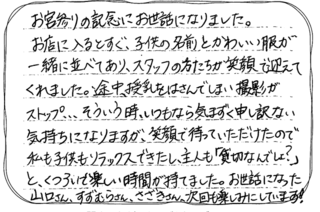 お宮参りの記念にお世話になりました。
お店に入るとすぐ、子供の名前とかわいい服が
一緒に並べてあり、スタッフの方たちが笑顔で迎えて
くれました。途中授乳をはさんでしまい撮影が
ストップ...そういう時、いつもなら気まずく申し訳ない
気持ちになりますが、笑顔で待っていただけたので
私も子供もリラックスできたし、主人も「貸切なんでしょ?」
と、くつろいで楽しい時間が持てました。お世話になった
山口さん、すずむらさん、さざきさん、次回も楽しみにしています!